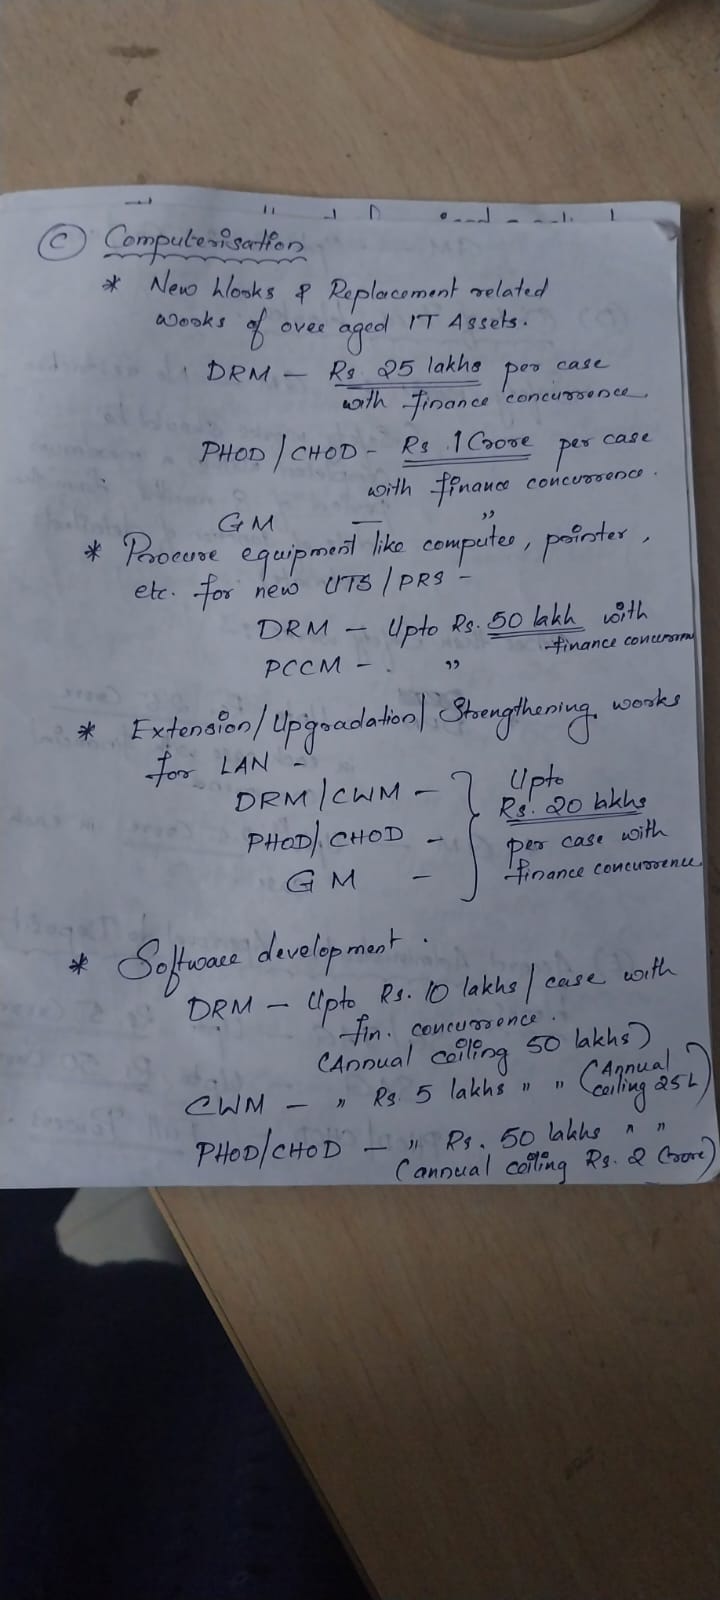 (C) Computerisation
* New Works & Replacement related
works of over aged IT Assets.
DRM – Rs. 25 lakhs per case
with finance concurrence.
PHOD/CHOD – Rs 1 Crore per case
with finance concurrence.
GM – "
* Procure equipment like computer, printer,
etc. for new UTS/PRS –
DRM – Upto Rs. 50 lakh with
finance concurren
PCCM – . "
* Extension/Upgradation/Strengthening works
for LAN –
DRM/CWM – } Upto
Rs. 20 lakhs
PHOD/CHOD – per case with
GM – finance concurrence
* Software development.
DRM – Upto Rs. 10 lakhs/case with
fin. concurrence.
(Annual ceiling 50 lakhs)
CWM – " Rs. 5 lakhs " " (Annual
ceiling 25L)
PHOD/CHOD – " Rs. 50 lakhs " "
(annual ceiling Rs. 2 Crore)